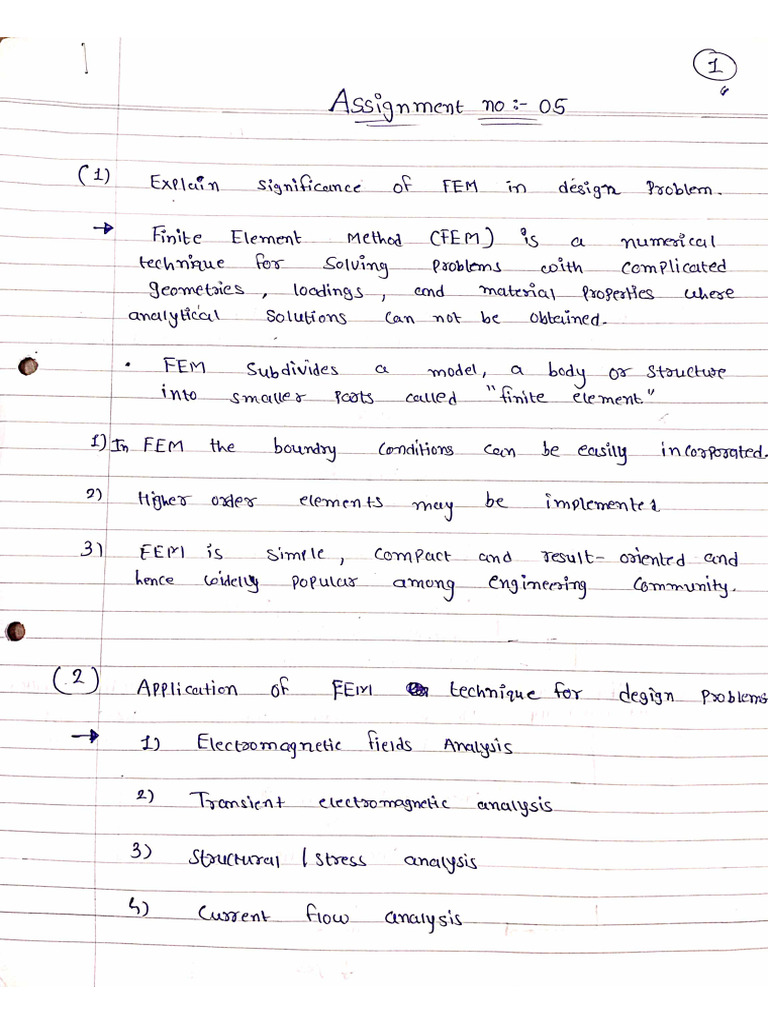 1
1
Assignment no :- 05
(1) Explain significance of FEM in design Problem.
→ Finite Element Method (FEM) is a numerical
technique for Solving Problems with complicated
geometries, loadings, and material properties where
analytical Solutions can not be obtained.
• FEM Subdivides a model, a body or structure
into smaller parts called "finite element."
1) In FEM the boundry conditions can be easily incorporated.
2) Higher order elements may be implemented
3) FEM is simple, compact and result-oriented and
hence widelly popular among engineering community.
(2) Application of FEM technique for degign problems
→ 1) Electromagnetic fields Analysis
2) Transient electromagnetic analysis
3) Structural / stress analysis
4) Current flow analysis